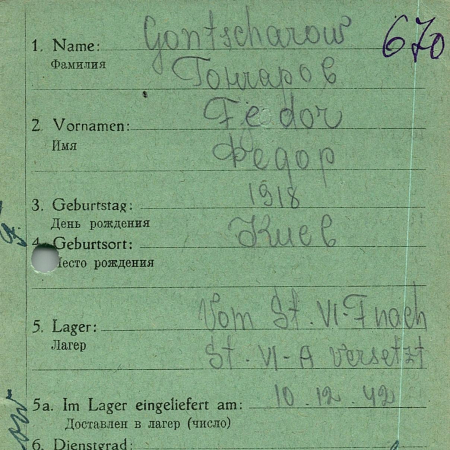 1. Name: Gontscharow 670
Фамилия Гончаров
2. Vornamen: Fedor
Имя Федор
3. Geburtstag: 1918
День рождения
4. Geburtsort: Киев
Место рождения
5. Lager: Vom St. VI-F nach
Лагер St. VI-A versetzt
5a. Im Lager eingeliefert am: 10.12.42
Доставлен в лагер (число)
6. Dienstgrad: